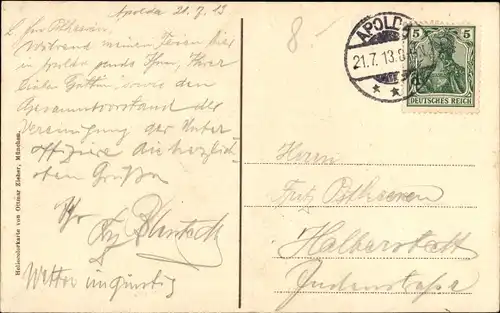 Apolda 21.7.13
L. Herr
Während meiner Ferien hier
in Apolda sende Ihnen, Ihrer
lieben Gattin, sowie den
Gesamtvorstand der
Vereinigung der Unter
offiziere die herzlich-
sten Grüße
Ihr
Wetter ungünstig
Heliocolorkarte von Ottmar Zieher, München.
8
APOLDA
21.7.13.8
5 5
DEUTSCHES REICH
Herrn
Fritz
Halberstadt
Judenstraße